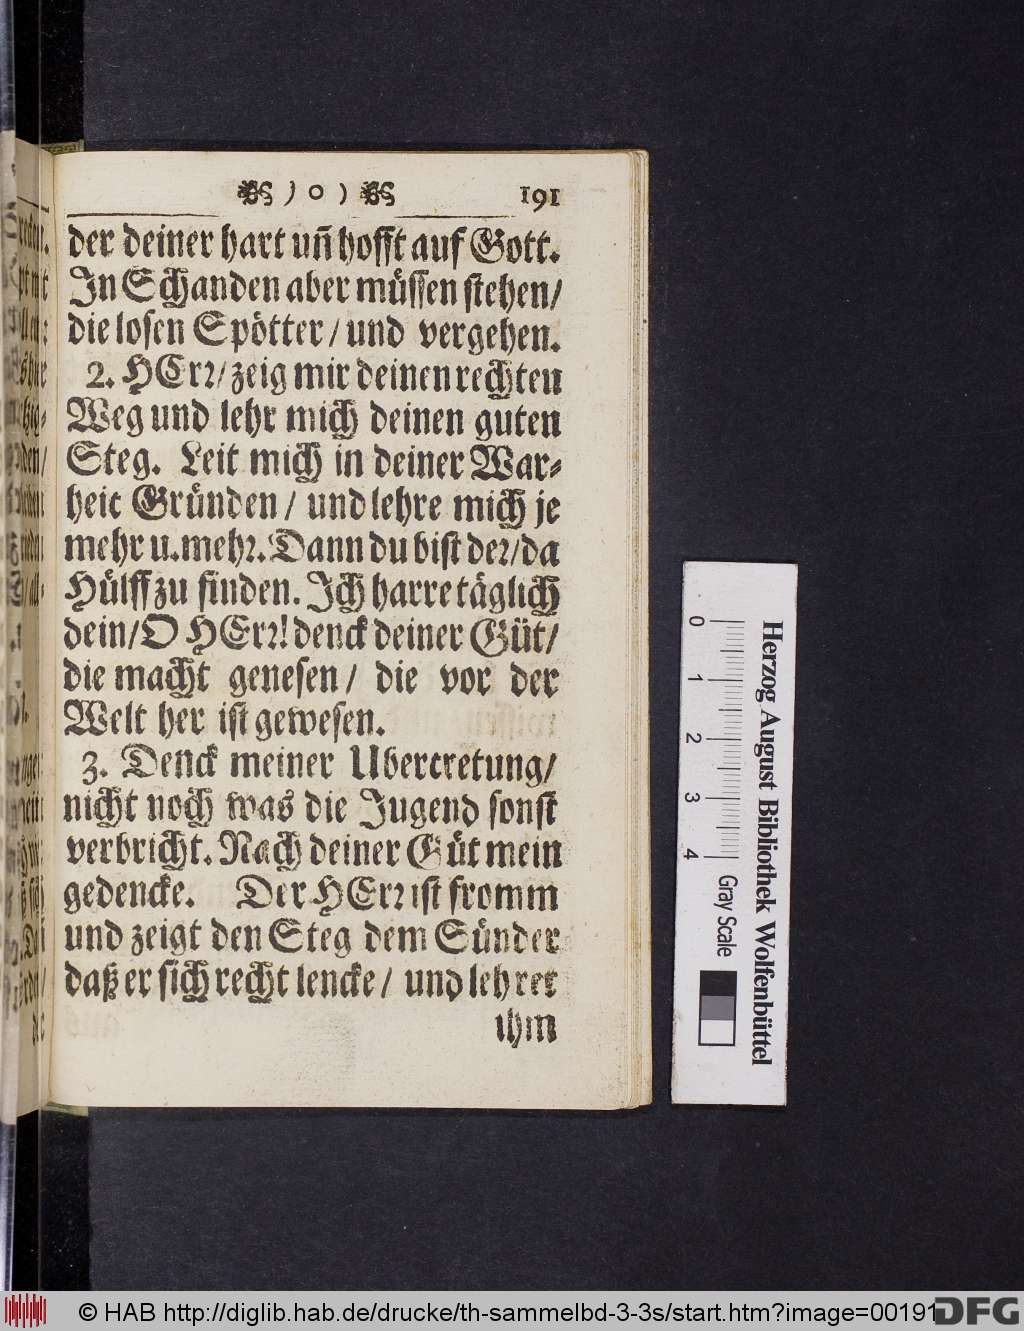 ) o ( 191
der deiner hart uñ hofft auf Gott.
In Schanden aber müssen stehen/
die losen Spötter/ und vergehen.
2. HErr/ zeig mir deinen rechten
Weg und lehr mich deinen guten
Steg. Leit mich in deiner War-
heit Gründen/ und lehre mich je
mehr u. mehr. Dann du bist der/ da
Hülff zu finden. Ich harre täglich
dein/ O HErr! denck deiner Güt/
die macht genesen/ die vor der
Welt her ist gewesen.
3. Denck meiner Ubertretung/
nicht noch was die Jugend sonst
verbricht. Nach deiner Güt mein
gedencke. Der HErr ist fromm
und zeigt den Steg dem Sünder
daß er sich recht lencke/ und lehret
ihm
0 1 2 3 4
Gray Scale
Herzog August Bibliothek Wolfenbüttel
© HAB http://diglib.hab.de/drucke/th-sammelbd-3-3s/start.htm?image=00191
DFG